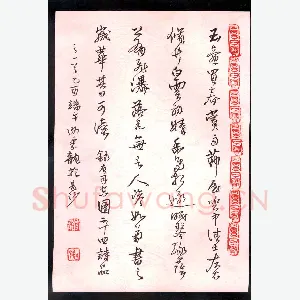 玉壺買春賞雨茆屋坐中佳士左右
修竹白雲初晴幽鳥相逐眠琴綠蔭
上有飛瀑落花無言人淡如菊書之
歲華其曰可讀 錄司空圖二十四詩品
己亥端午
Shufawang.CN